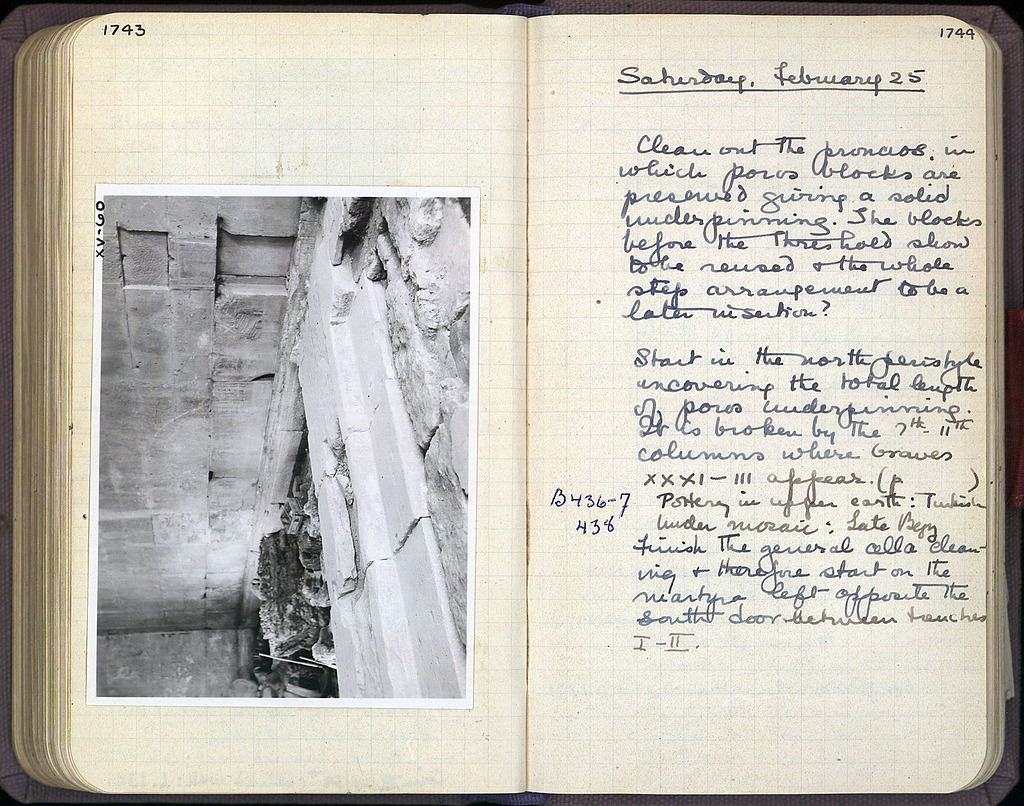 1743
XV-60
1744
Saturday, February 25
Clean out the pronaos, in
which poros blocks are
preserved giving a solid
underpinning. The blocks
before the threshold show
to be reused & the whole
step arrangement to be a
later insertion?
Start in the north peristyle
uncovering the total length
of poros underpinning.
It is broken by the 7th-11th
columns where Graves
XXXI-III appear. (p        )
B436-7
438
Pottery in upper earth: Turkish
under mozaic: Late Byz
Finish the general cella clean-
ing & therefore start on the
martyra left opposite the
south door between trenches
I-II.